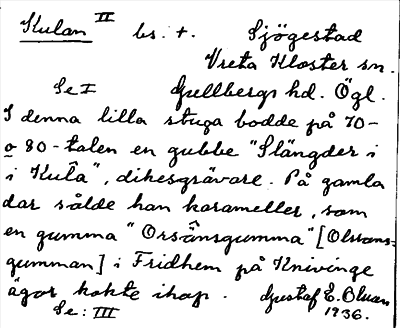 Kulan II bs. t. Sjögestad
Vreta Kloster sn.
Se I Gullbergs hd. Ögl.
I denna lilla stuga bodde på 70-
o 80-talen en gubbe "Slängder i
i Kulâ", dikesgrävare. På gamla
dar sålde han karameller, som
en gumma "Orsânsgumma" [Olsrons-
gumman] i Fridhem på Knivinge
ägor kokte ihop. Gustaf E. Bluan
Se: III 1936.